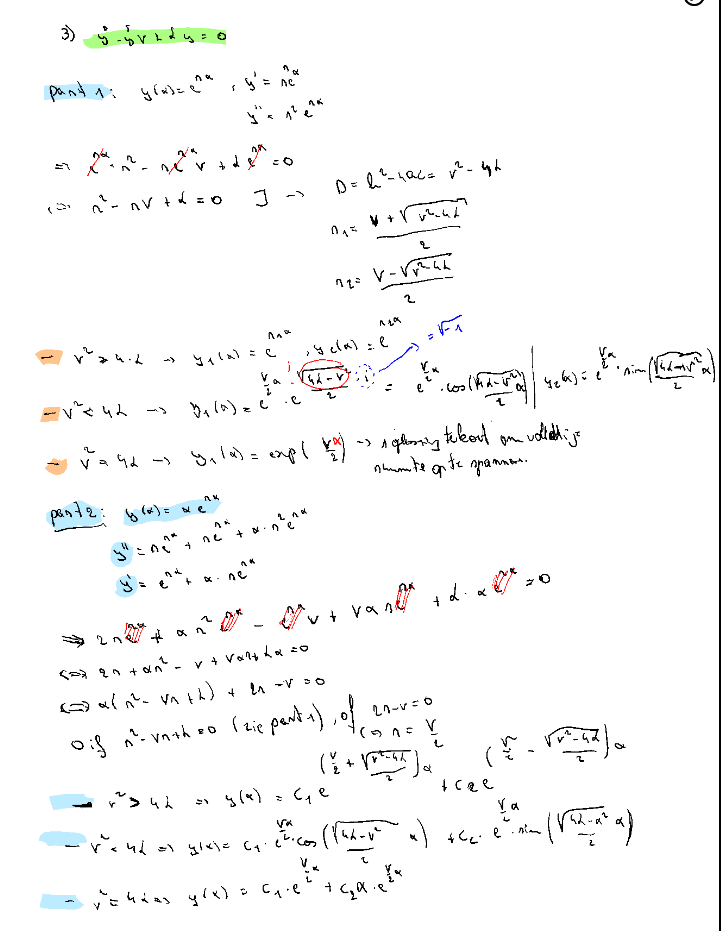 3) y'' - y'v + αy = 0
part 1: y(x) = e^{nx}, y' = ne^{nx}
y'' = n² e^{nx}
=> e^{nx} · n² - ne^{nx} v + α e^{nx} = 0
<=> n² - nv + α = 0 ] → D = b² - 4ac = v² - 4α
n₁ = (v + √(v²-4α))/2
n₂ = (v - √(v²-4α))/2
- v² > 4·α → y₁(x) = e^{n₁x}, y₂(x) = e^{n₂x} = √-1
- v² < 4α → y₁(x) = e^{v/2 x} · e^{√(4α-v²)/2 · i} = e^{v/2 x} · cos(√(4α-v²)/2 x) | y₂(x) = e^{v/2 x} · sin(√(4α-v²)/2 x)
- v² = 4α → y₁(x) = exp(v/2 x) → 1 oplossing tekort om volledige
ruimte op te spannen.
part 2: y(x) = x e^{nx}
y'' = ne^{nx} + ne^{nx} + x·n² e^{nx}
y' = e^{nx} + x·ne^{nx}
=> 2ne^{nx} + xn² e^{nx} - e^{nx} v + vxne^{nx} + α·xe^{nx} = 0
<=> 2n + xn² - v + vxn + αx = 0
<=> x(n² - vn + α) + 2n - v = 0
0 if n² - vn + α = 0 (zie part 1), of 2n - v = 0
<=> n = v/2
- v² > 4α => y(x) = C₁e^{(v/2 + √(v²-4α)/2)x} + C₂e^{(v/2 - √(v²-4α)/2)x}
- v² < 4α => y(x) = C₁·e^{v/2 x} cos(√(4α-v²)/2 x) + C₂·e^{v/2 x} · sin(√(4α-x²)/2 x)
- v² = 4α => y(x) = C₁·e^{v/2 x} + C₂x·e^{v/2 x}